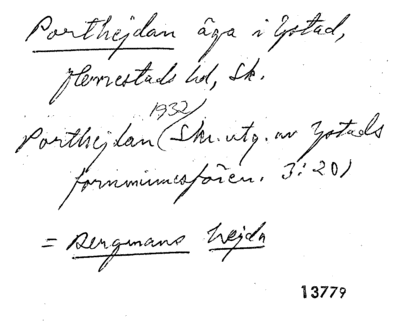 Porthejdan äga i Ystad,
Herrestads hd, Sk.
1932
Porthejdan (Skr. utg. av Ystads
fornminnesfören. 3: 20)
= Bergmans hejda
13779